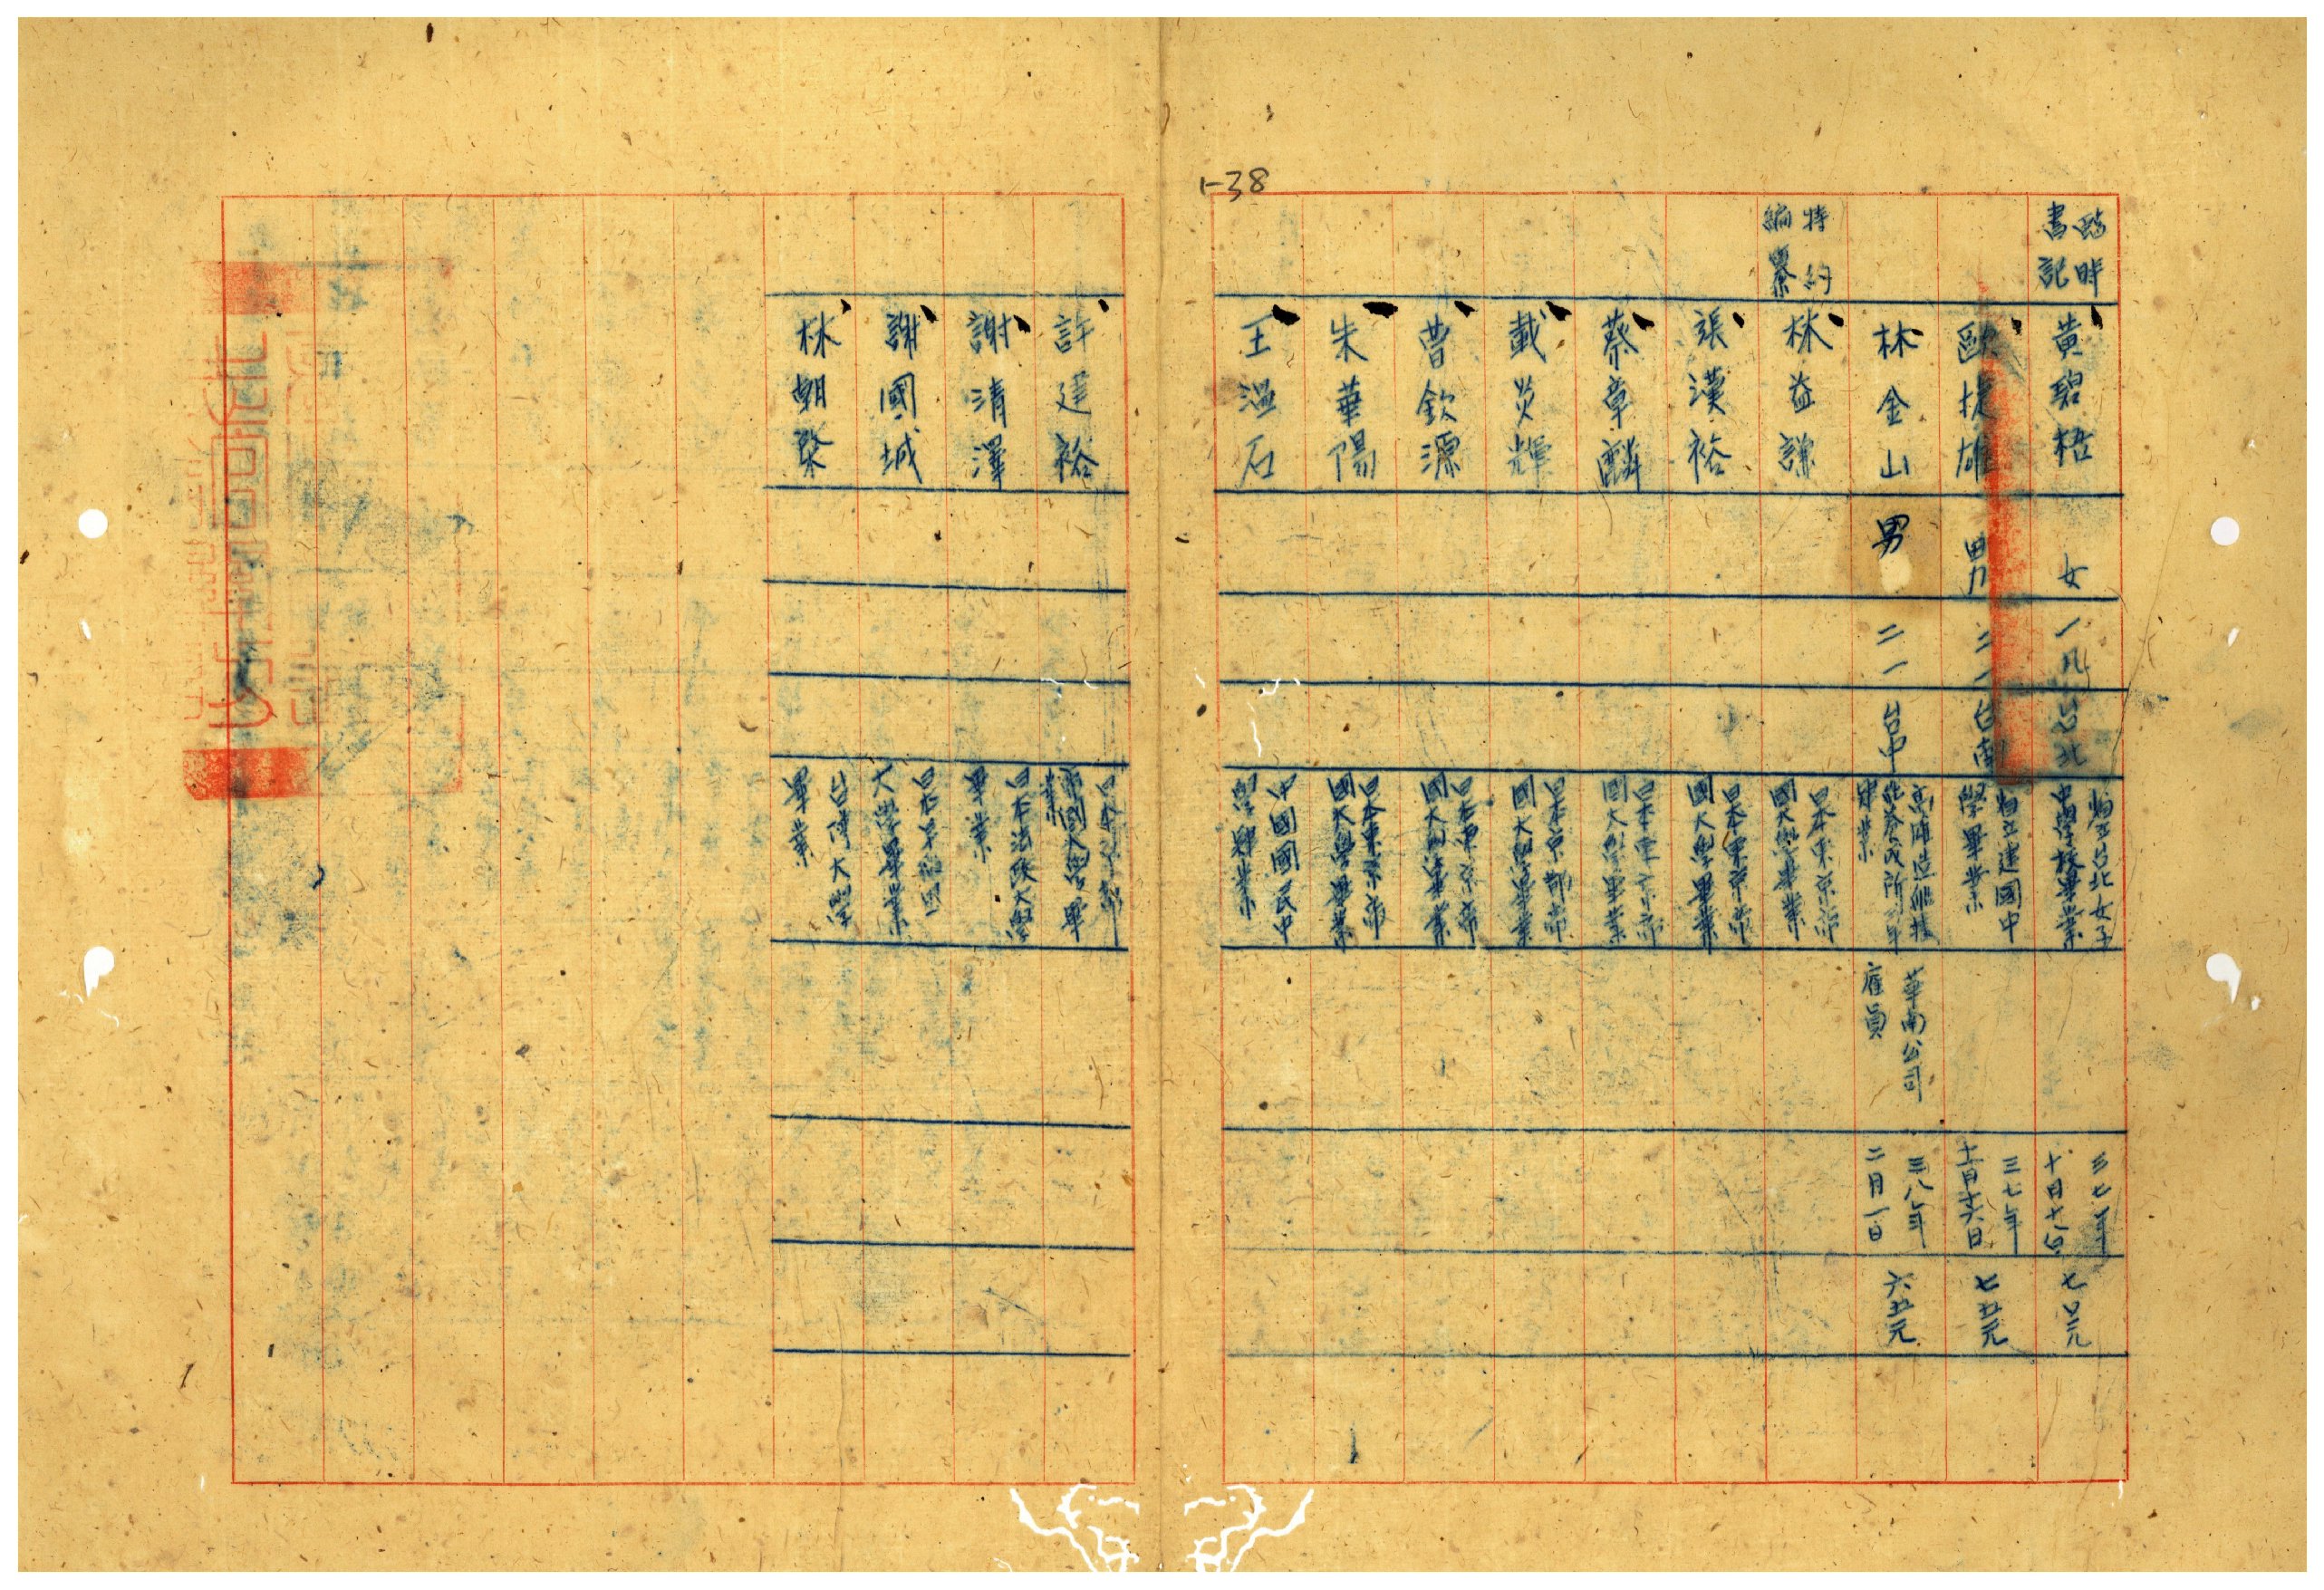 1-38
臨時
書記
黃碧梧
女
一八
台北
省立台北女子
中學校畢業
歐捷雄
男
二一
台南
省立建國中
學畢業
林金山
男
二一
台中
畢業
華南公司
雇員
三七年
七〇元
三七年
十二月十六日
七五元
三八年
二月一日
六五元
特約
編纂
林益謙
日本東京帝
國大學畢業
張漢裕
日本東京帝
國大學畢業
蔡章麟
日本東京帝
國大學畢業
戴炎輝
日本京都帝
國大學畢業
曹欽源
日本東京帝
國大學畢業
朱華陽
日本東京帝
國大學畢業
王溫石
中國國民中
學畢業
許建裕
日本京都
帝國大學畢
業
謝清澤
日本法政大學
畢業
謝國城
日本早稻田
大學畢業
林朝棨
台灣大學
畢業